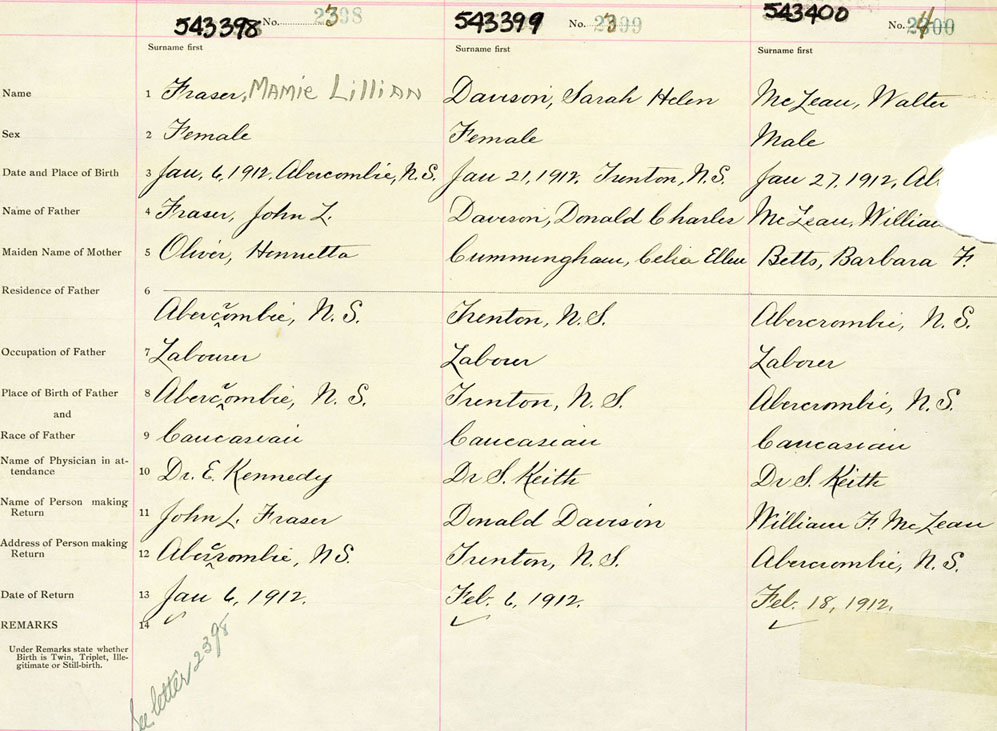 543398 No. 2398 3 543399 No. 2399 3 543400 No. 2400 4
Surname first Surname first Surname first
Name 1 Fraser, Mamie Lillian Davison, Sarah Helen McLean, Walter
Sex 2 Female Female Male
Date and Place of Birth 3 Jan. 6, 1912. Abercombie, N.S. Jan 21, 1912. Trenton, N.S. Jan 27, 1912, Ab
Name of Father 4 Fraser, John L. Davison, Donald Charles McLean, William
Maiden Name of Mother 5 Oliver, Henrietta Cunningham, Celia Ellen Betts, Barbara F.
Residence of Father 6
Abercrombie, N.S. Trenton, N.S. Abercrombie, N.S.
Occupation of Father 7 Labourer Laborer Laborer
Place of Birth of Father 8 Abercrombie, N.S. Trenton, N.S. Abercrombie, N.S.
and
Race of Father 9 Caucasian Caucasian Caucasian
Name of Physician in at-
tendance 10 Dr. E. Kennedy Dr S. Keith Dr S. Keith
Name of Person making
Return 11 John L. Fraser Donald Davison William F. McLean
Address of Person making
Return 12 Abercrombie, N.S. Trenton, N.S. Abercrombie, N.S.
Date of Return 13 Jan 6, 1912. Feb. 6, 1912. Feb. 18, 1912.
REMARKS 14
Under Remarks state whether
Birth is Twin, Triplet, Ille-
gitimate or Still-birth.
See letter 2398